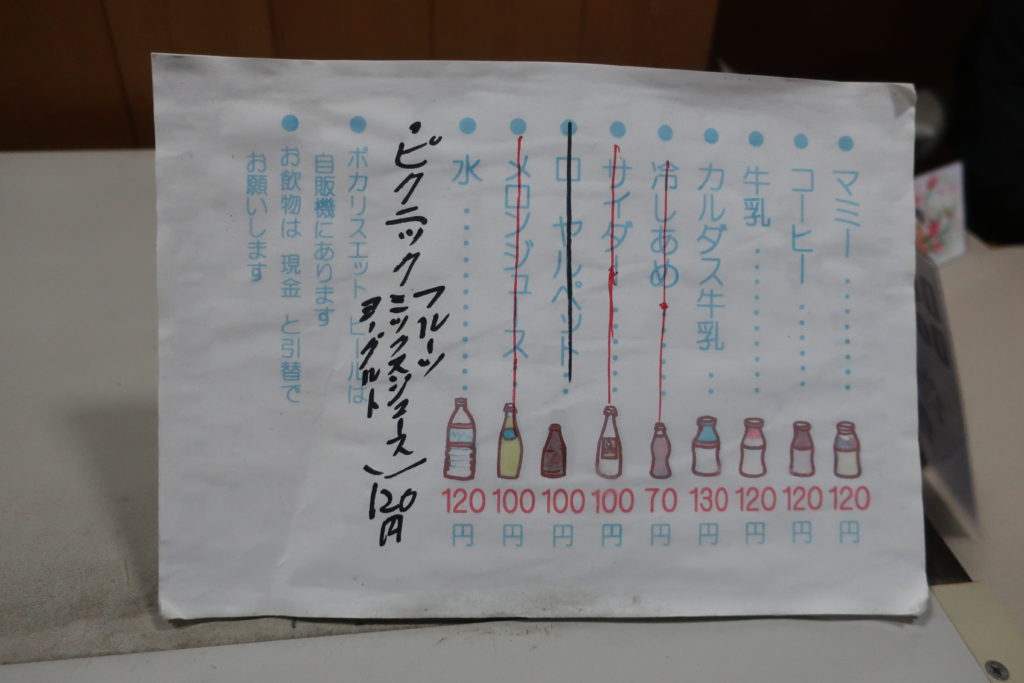 ● マミー ......... 120円
● コーヒー ........ 120円
● 牛乳 .......... 120円
● カルダス牛乳 .. 130円
● 冷しあめ ...... 70円
● サイダー ...... 100円
● ロ ヤルペット .. 100円
● メロンジュース .. 100円
● 水 ............ 120円
・ピクニック フルーツ ミックスジュース ヨーグルト 120円
● ポカリスエット ビールは
自販機にあります
● お飲物は 現金 と引替で
お願いします